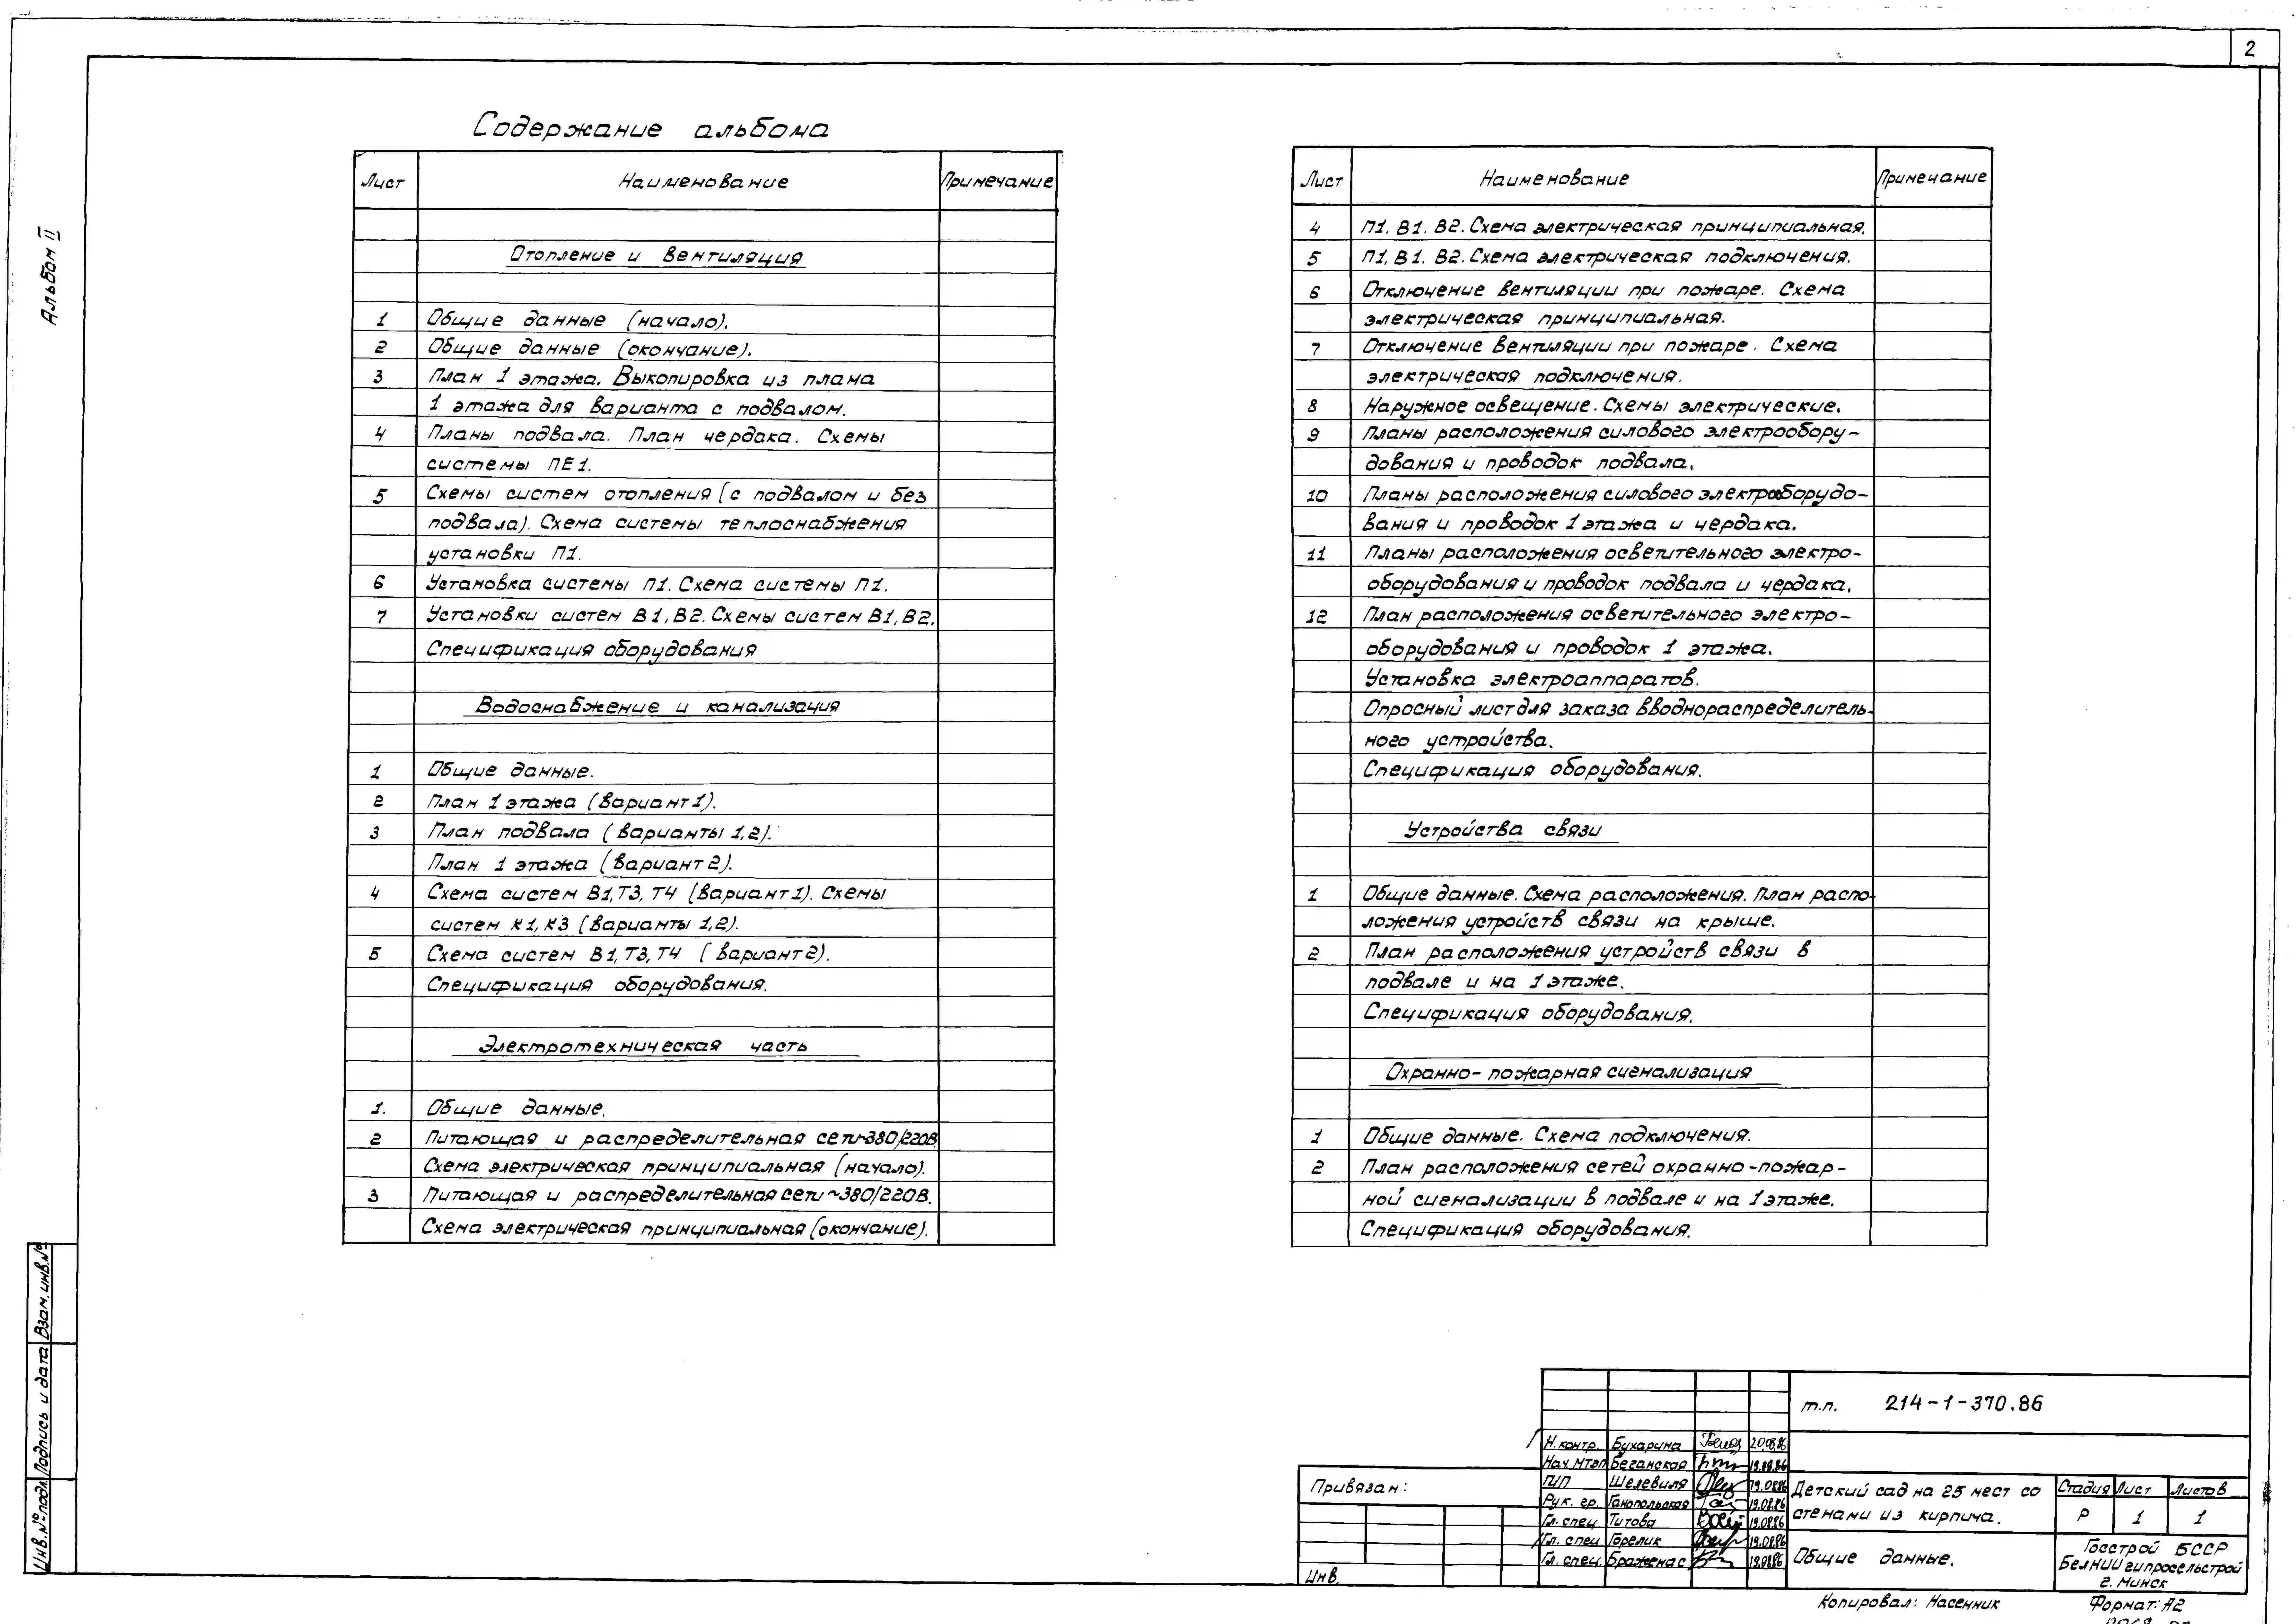 2
Альбом II
Содержание альбома
Лист Наименование Примечание
Отопление и вентиляция
1 Общие данные (начало).
2 Общие данные (окончание).
3 План 1 этажа. Выкопировка из плана
1 этажа для варианта с подвалом.
4 Планы подвала. План чердака. Схемы
системы ПЕ1.
5 Схемы систем отопления (с подвалом и без
подвала). Схема системы теплоснабжения
установки П1.
6 Установка системы П1. Схема системы П1.
7 Установки систем В1, В2. Схемы систем В1, В2.
Спецификация оборудования
Водоснабжение и канализация
1 Общие данные.
2 План 1 этажа (вариант 1).
3 План подвала (варианты 1,2).
План 1 этажа (вариант 2).
4 Схема систем В1, Т3, Т4 (вариант 1). Схемы
систем К1, К3 (варианты 1,2).
5 Схема систем В1, Т3, Т4 (вариант 2).
Спецификация оборудования.
Электротехническая часть
1. Общие данные.
2 Питающая и распределительная сети ~380/220В.
Схема электрическая принципиальная (начало).
3 Питающая и распределительная сети ~380/220В.
Схема электрическая принципиальная (окончание).
Лист Наименование Примечание
4 П1. В1. В2. Схема электрическая принципиальная.
5 П1. В1. В2. Схема электрическая подключения.
6 Отключение вентиляции при пожаре. Схема
электрическая принципиальная.
7 Отключение вентиляции при пожаре. Схема
электрическая подключения.
8 Наружное освещение. Схемы электрические.
9 Планы расположения силового электрообору-
дования и проводок подвала.
10 Планы расположения силового электрооборудо-
вания и проводок 1 этажа и чердака.
11 Планы расположения осветительного электро-
оборудования и проводок подвала и чердака.
12 План расположения осветительного электро-
оборудования и проводок 1 этажа.
Установка электроаппаратов.
Опросный лист для заказа вводнораспределитель-
ного устройства.
Спецификация оборудования.
Устройства связи
1 Общие данные. Схема расположения. План распо-
ложения устройств связи на крыше.
2 План расположения устройств связи в
подвале и на 1 этаже.
Спецификация оборудования.
Охранно-пожарная сигнализация
1 Общие данные. Схема подключения.
2 План расположения сетей охранно-пожар-
ной сигнализации в подвале и на 1 этаже.
Спецификация оборудования.
Инв.№ подл. Подпись и дата Взам.инв.№
Привязан:
Инв.
Н.контр. Бухарина 20.08.86
Нач МТЭП Беганская 19.08.86
ГИП Шелевиля 19.08.86
Рук. гр. Ганопольская 19.08.86
Гл. спец Титова 19.08.86
Гл. спец Горелик 19.08.86
Гл. спец. Браженас 19.08.86
т.п. 214-1-370.86
Детский сад на 25 мест со
стенами из кирпича.
Стадия Лист Листов
Р 1 1
Общие данные.
Госстрой БССР
БелНИИгипросельстрой
г. Минск
Копировал: Насенник Формат: А2